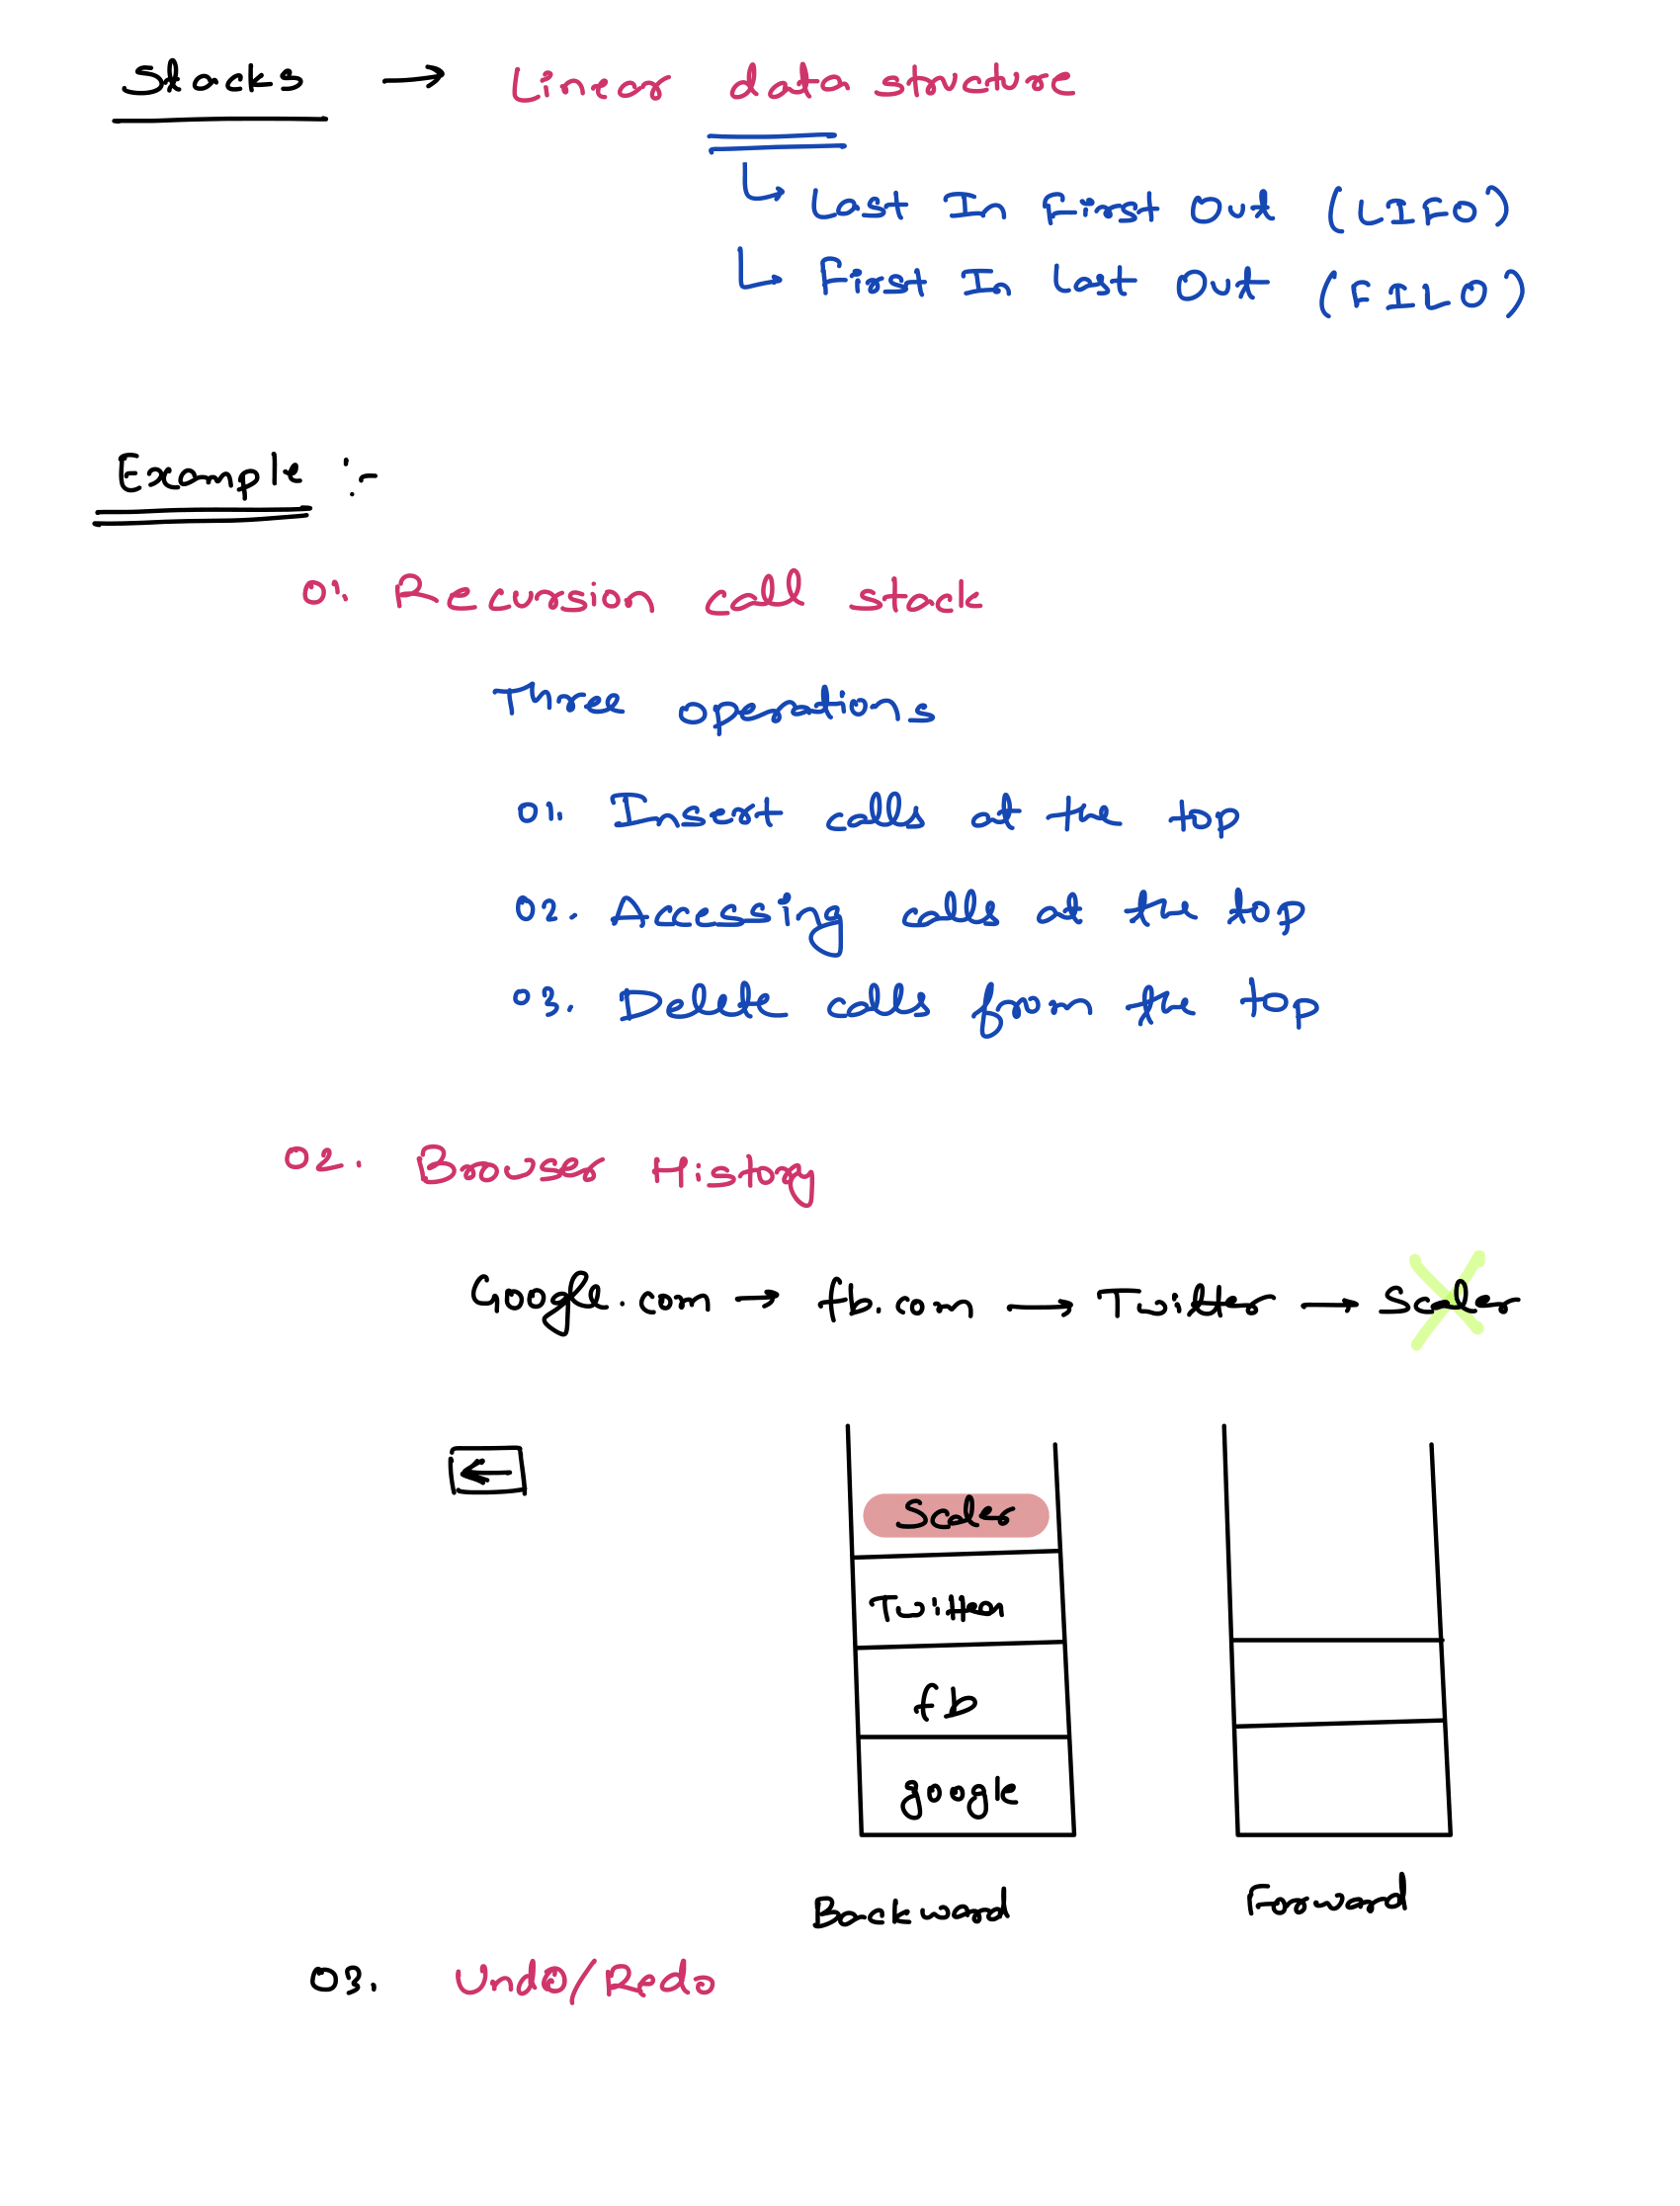 Stacks → Linear data structure
↳ Last In First Out (LIFO)
↳ First In Last Out (FILO)
Example :-
01. Recursion call stack
Three operations
01. Insert calls at the top
02. Accessing calls at the top
03. Delete calls from the top
02. Browser History
Google.com → fb.com → Twitter → Scaler
←
Scaler
Twitter
fb
google
Backward Forward
03. Undo/Redo